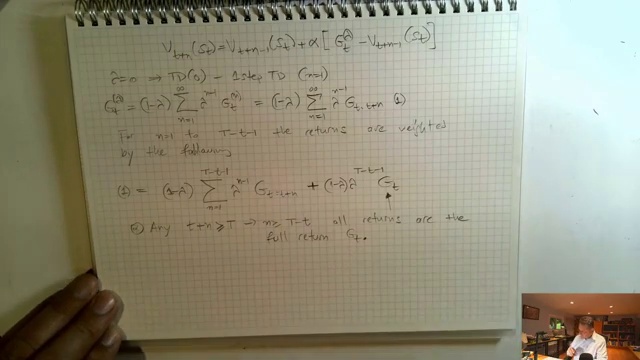 V_{t+n}(S_t) = V_{t+n-1}(S_t) + α [ G_t^λ - V_{t+n-1}(S_t) ]
λ=0 ⇒ TD(0) - 1 step TD (n=1)
G_t^{(λ)} = (1-λ) ∑_{n=1}^{∞} λ^{n-1} G_t^{(n)} = (1-λ) ∑_{n=1}^{∞} λ^{n-1} G_{t:t+n} (1)
For n=1 to T-t-1 the returns are weighted
by the following
(1) = (1-λ) ∑_{n=1}^{T-t-1} λ^{n-1} G_{t:t+n} + (1-λ) λ^{T-t-1} G_t
Any t+n ≥ T → n ≥ T-t all returns are the
full return G_t.